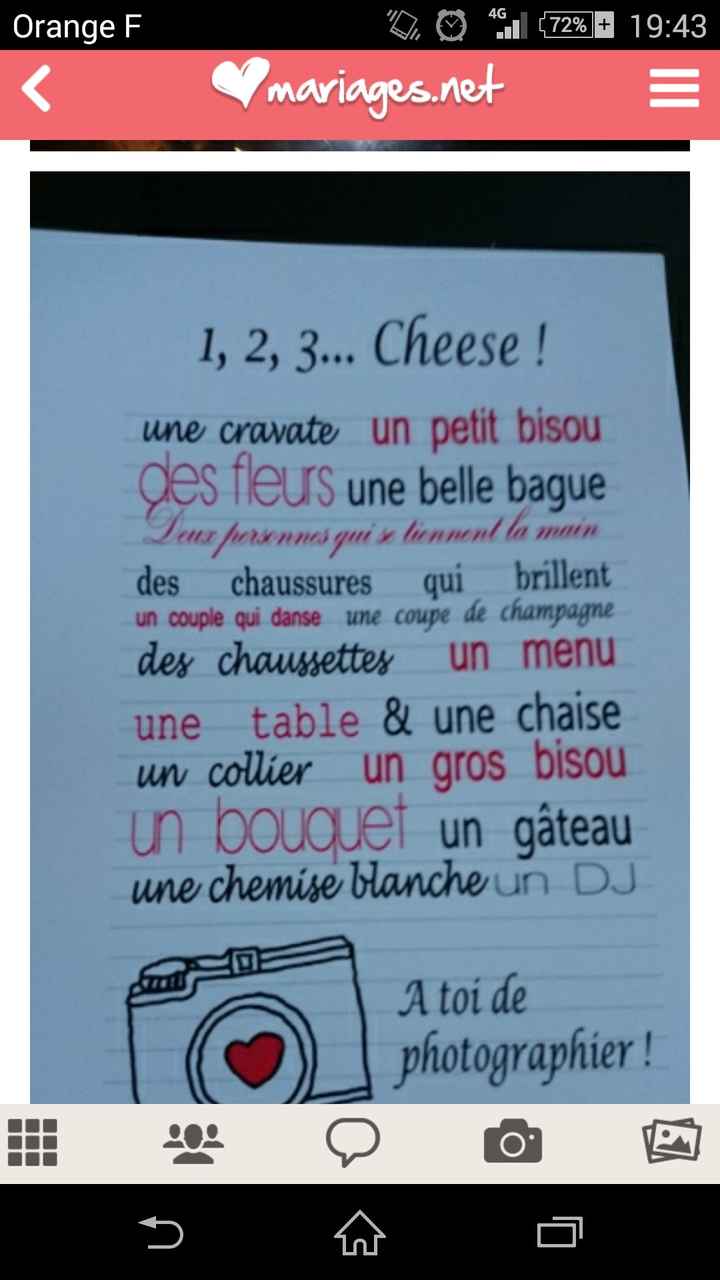 Orange F 4G 72% 19:43
mariages.net
1, 2, 3... Cheese !
une cravate un petit bisou
des fleurs une belle bague
Deux personnes qui se tiennent la main
des chaussures qui brillent
un couple qui danse une coupe de champagne
des chaussettes un menu
une table & une chaise
un collier un gros bisou
un bouquet un gâteau
une chemise blanche un DJ
A toi de
photographier !